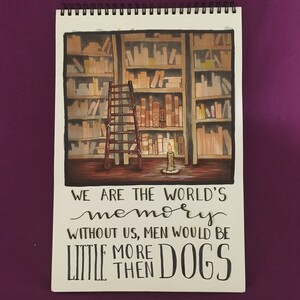 WE ARE THE WORLD'S
memory
WITHOUT US, MEN WOULD BE
LITTLE MORE THEN DOGS